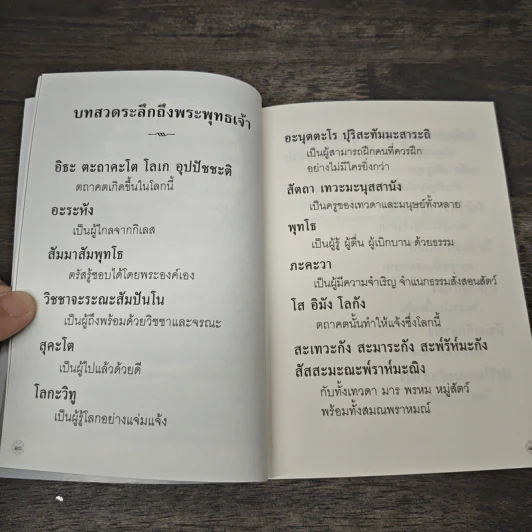 บทสวดระลึกถึงพระพุทธเจ้า
อิธะ ตะถาคะโต โลเก อุปปัชชะติ
ตถาคตเกิดขึ้นในโลกนี้
อะระหัง
เป็นผู้ไกลจากกิเลส
สัมมาสัมพุทโธ
ตรัสรู้ชอบได้โดยพระองค์เอง
วิชชาจะระณะสัมปันโน
เป็นผู้ถึงพร้อมด้วยวิชชาและจรณะ
สุคะโต
เป็นผู้ไปแล้วด้วยดี
โลกะวิทู
เป็นผู้รู้โลกอย่างแจ่มแจ้ง
อะนุตตะโร ปุริสะทัมมะสาระถิ
เป็นผู้สามารถฝึกคนที่ควรฝึก
อย่างไม่มีใครยิ่งกว่า
สัตถา เทวะมะนุสสานัง
เป็นครูของเทวดาและมนุษย์ทั้งหลาย
พุทโธ
เป็นผู้รู้ ผู้ตื่น ผู้เบิกบาน ด้วยธรรม
ภะคะวา
เป็นผู้มีความจำเริญ จำแนกธรรมสั่งสอนสัตว์
โส อิมัง โลกัง
ตถาคตนั้นทำให้แจ้งซึ่งโลกนี้
สะเทวะกัง สะมาระกัง สะพ๎รัห๎มะกัง
สัสสะมะณะพ๎ราห๎มะณิง
กับทั้งเทวดา มาร พรหม หมู่สัตว์
พร้อมทั้งสมณพราหมณ์